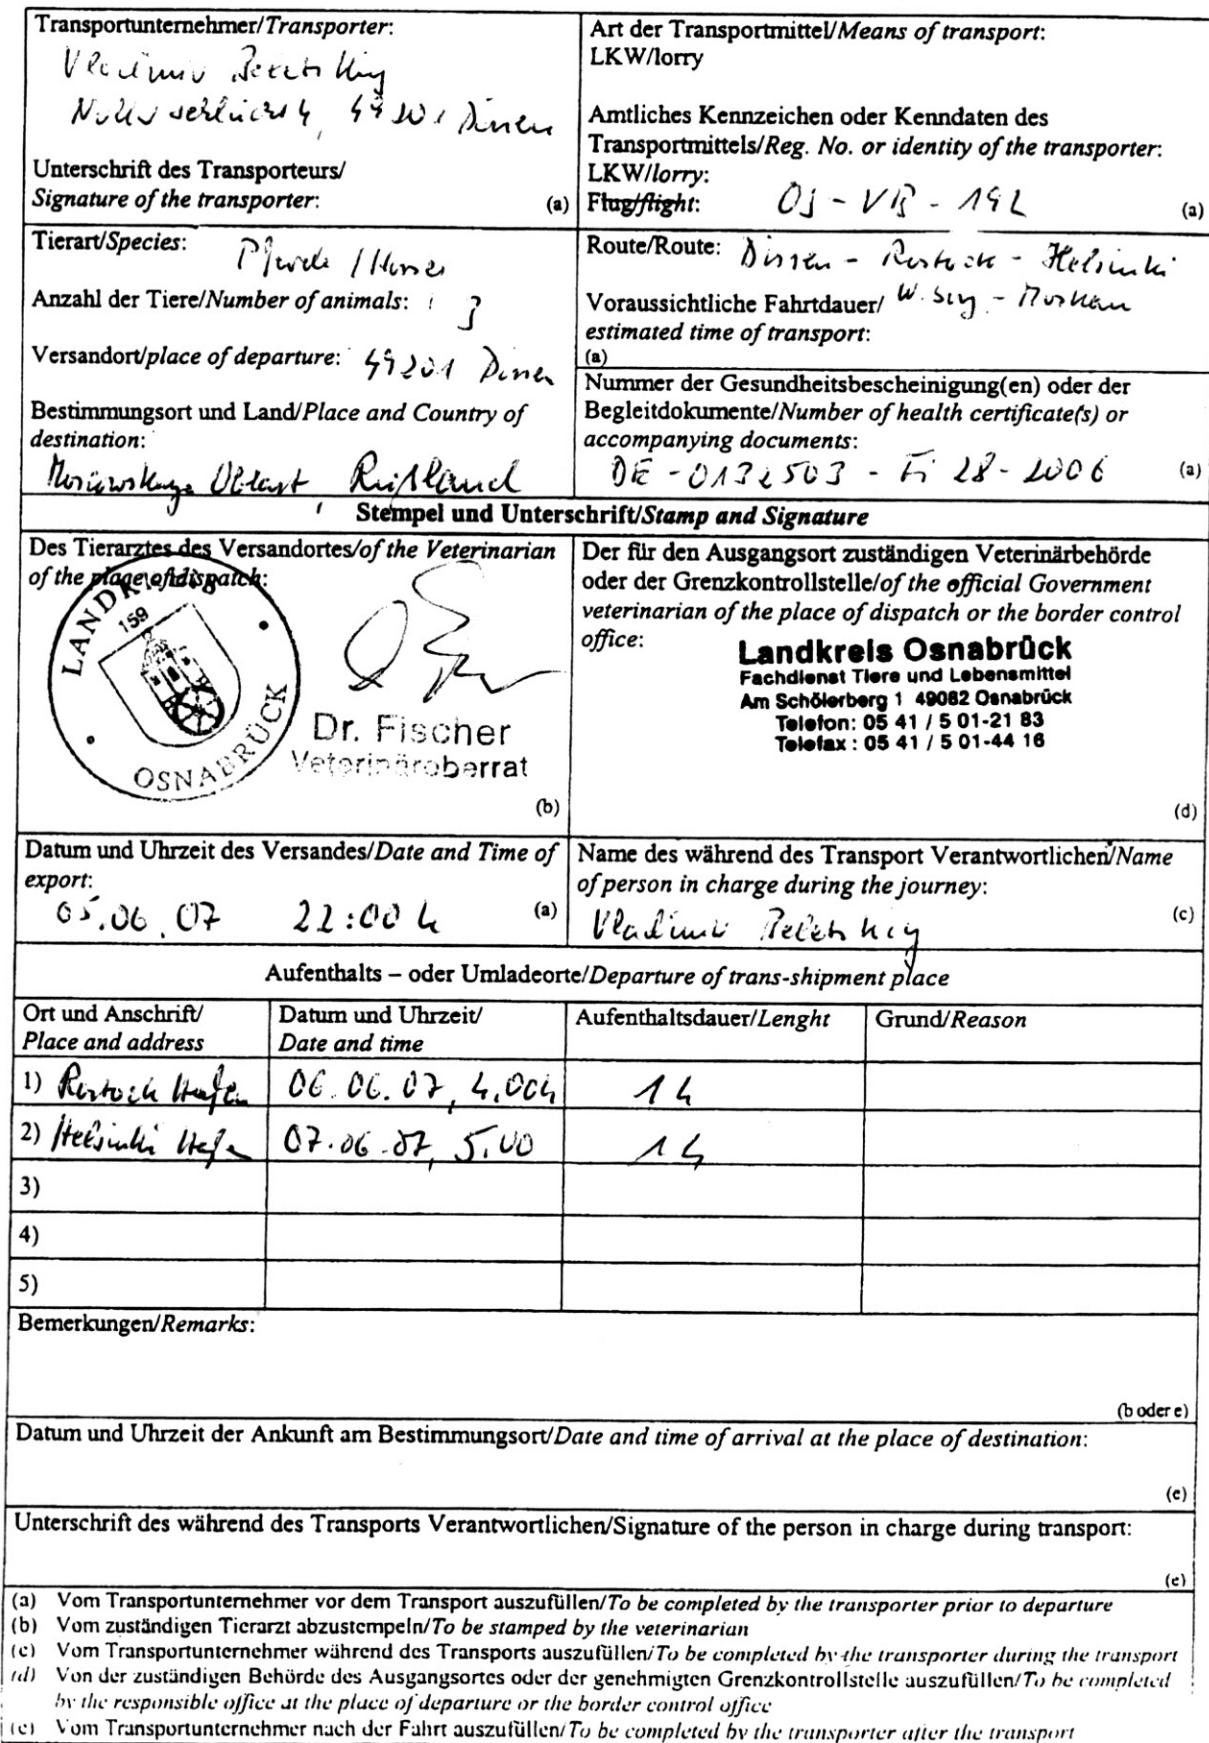 Transportunternehmer/Transporter:
Vladimir Beletskiy
49201 Dissen
Unterschrift des Transporteurs/
Signature of the transporter: (a)
Art der Transportmittel/Means of transport:
LKW/lorry
Amtliches Kennzeichen oder Kenndaten des
Transportmittels/Reg. No. or identity of the transporter:
LKW/lorry:
Flug/flight: (a)
Tierart/Species: Pferde / Horses
Anzahl der Tiere/Number of animals: 3
Versandort/place of departure: 49201 Dissen
Bestimmungsort und Land/Place and Country of
destination:
Moskowskaya Oblast, Rußland
Route/Route: Dissen - Rostock - Helsinki
Voraussichtliche Fahrtdauer/ - Moskau
estimated time of transport:
(a)
Nummer der Gesundheitsbescheinigung(en) oder der
Begleitdokumente/Number of health certificate(s) or
accompanying documents:
DE - 0132503 - Fi 28 - 2006 (a)
Stempel und Unterschrift/Stamp and Signature
Des Tierarztes des Versandortes/of the Veterinarian
of the place of dispatch:
LANDKREIS
159
OSNABRÜCK
Dr. Fischer
Veterinäroberrat
(b)
Der für den Ausgangsort zuständigen Veterinärbehörde
oder der Grenzkontrollstelle/of the official Government
veterinarian of the place of dispatch or the border control
office:
Landkreis Osnabrück
Fachdienst Tiere und Lebensmittel
Am Schölerberg 1 49082 Osnabrück
Telefon: 05 41 / 5 01-21 83
Telefax: 05 41 / 5 01-44 16
(d)
Datum und Uhrzeit des Versandes/Date and Time of
export:
05.06.07 22:00 h (a)
Name des während des Transport Verantwortlichen/Name
of person in charge during the journey:
Vladimir Beletskiy (c)
Aufenthalts – oder Umladeorte/Departure of trans-shipment place
Ort und Anschrift/ Datum und Uhrzeit/ Aufenthaltsdauer/Lenght Grund/Reason
Place and address Date and time
1) Rostock Hafen 06.06.07, 4.00h 1 h
2) Helsinki Hafen 07.06.07, 5.00 1 h
3)
4)
5)
Bemerkungen/Remarks:
(b oder e)
Datum und Uhrzeit der Ankunft am Bestimmungsort/Date and time of arrival at the place of destination:
(e)
Unterschrift des während des Transports Verantwortlichen/Signature of the person in charge during transport:
(e)
(a) Vom Transportunternehmer vor dem Transport auszufüllen/To be completed by the transporter prior to departure
(b) Vom zuständigen Tierarzt abzustempeln/To be stamped by the veterinarian
(c) Vom Transportunternehmer während des Transports auszufüllen/To be completed by the transporter during the transport
(d) Von der zuständigen Behörde des Ausgangsortes oder der genehmigten Grenzkontrollstelle auszufüllen/To be completed
by the responsible office at the place of departure or the border control office
(e) Vom Transportunternehmer nach der Fahrt auszufüllen/To be completed by the transporter after the transport